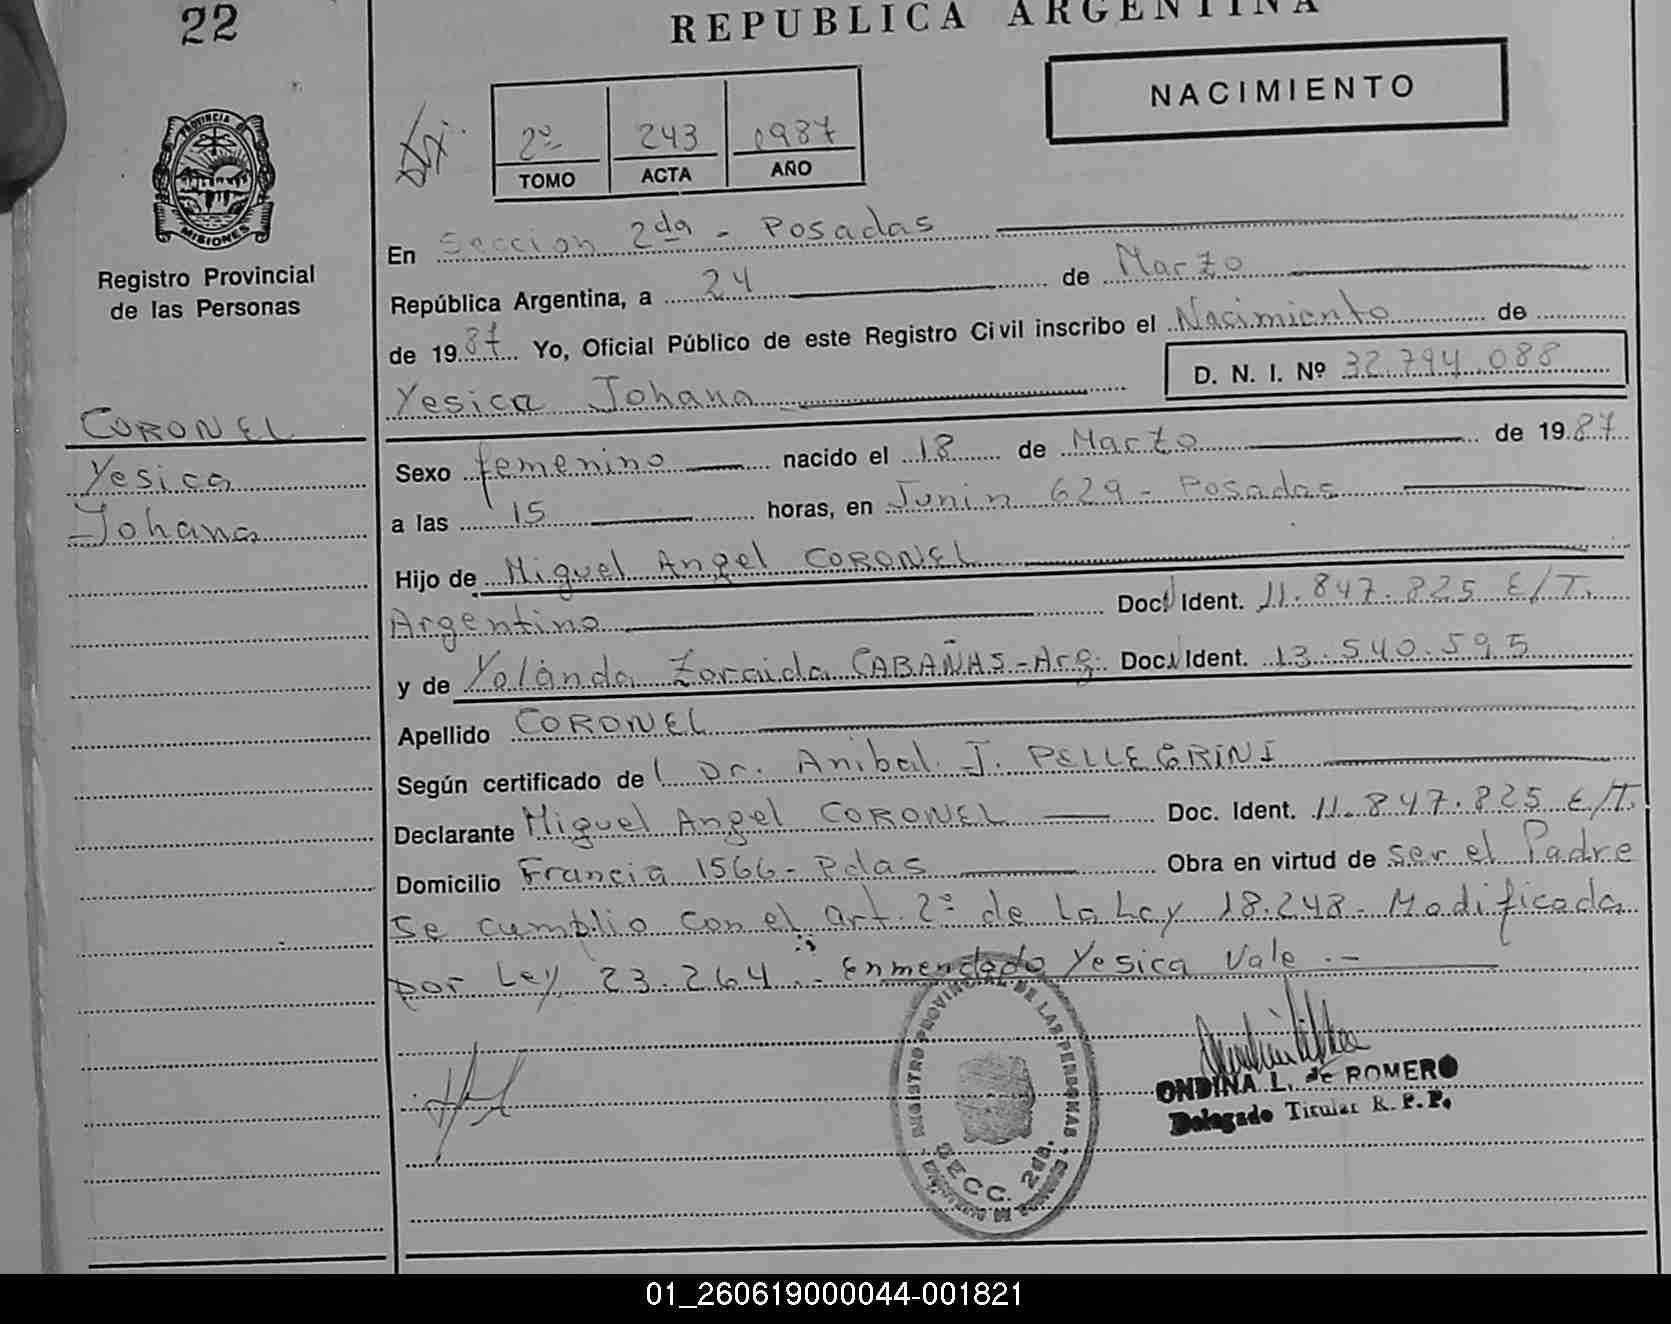 22
REPUBLICA ARGENTINA
NACIMIENTO
2º 243 1987
TOMO ACTA AÑO
PROVINCIA DE MISIONES
Registro Provincial
de las Personas
CORONEL
Yesica
Johana
En Seccion 2da - Posadas
República Argentina, a 24 de Marzo
de 1987 Yo, Oficial Público de este Registro Civil inscribo el Nacimiento de
Yesica Johana D. N. I. Nº 32.794.088
Sexo femenino nacido el 18 de Marzo de 1987
a las 15 horas, en Junin 629 - Posadas
Hijo de Miguel Angel CORONEL
Argentino Doc. Ident. 11.847.825 E/T.
y de Yolanda Zoraida CABAÑAS - Arg. Doc. Ident. 13.540.595
Apellido CORONEL
Según certificado de Dr. Anibal J. PELLEGRINI
Declarante Miguel Angel CORONEL Doc. Ident. 11.847.825 E/T.
Domicilio Francia 1566 - Pdas Obra en virtud de ser el Padre
Se cumplio con el art. 2º de la Ley 18.248 - Modificada
por Ley 23.264 .- Enmendado Yesica Vale .-
REGISTRO PROVINCIAL DE LAS PERSONAS
SECC. 2da.
ONDINA L. de ROMERO
Delegado Titular R. P. P.
01_260619000044-001821